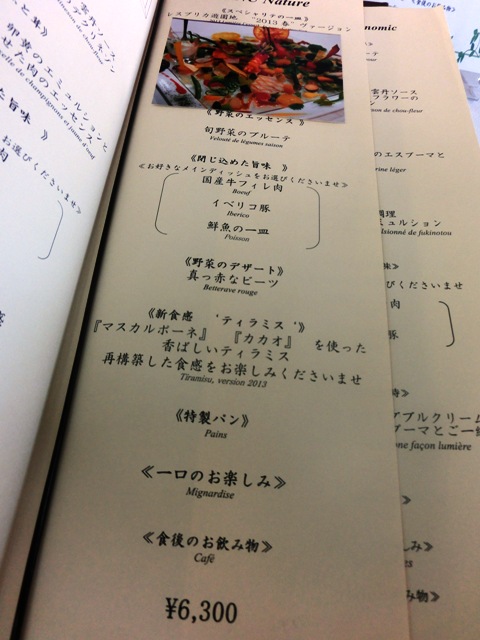 Nature
《スペシャリテの一皿》
レスプリカ遊園地 "2013 春" ヴァージョン
《野菜のエッセンス》
旬野菜のブルーテ
Velouté de légumes saison
《閉じ込めた旨味》
《お好きなメインディッシュをお選びくださいませ》
国産牛フィレ肉
Boeuf
イベリコ豚
Iberico
鮮魚の一皿
Poisson
《野菜のデザート》
真っ赤なビーツ
Betterave rouge
《新食感 ‘ティラミス‘》
『マスカルポーネ』 『カカオ』 を使った
香ばしいティラミス
再構築した食感をお楽しみくださいませ
Tiramisu, version 2013
《特製パン》
Pains
《一口のお楽しみ》
Mignardise
《食後のお飲み物》
Café
¥6,300
卵黄のエミュルションと
せた肉のエッセンス
た旨味 》
お選びくださいませ》
nomic
雲丹ソース
フラワーの
n de chou-fleur
のエスプーマと
rine léger
調理
ミュルション
lsionné de fukinotou
味》
び くださいませ
肉
豚
アブルクリーム
プーマとご一緒
one façon lumière
しみ》
es
み物》